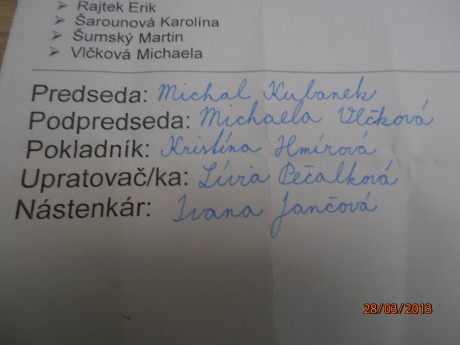 ➢ Rajtek Erik
➢ Šarounová Karolína
➢ Šumský Martin
➢ Vlčková Michaela
Predseda: Michal Kubanek
Podpredseda: Michaela Vlčková
Pokladník: Kristína Hmírová
Upratovač/ka: Lívia Pečalková
Nástenkár: Ivana Jančová
28/09/2013